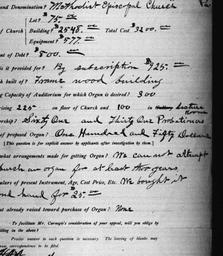 and Denomination? Methodist Episcopal Church
Lot? $75.00
of Church Building? $2548.00 Total Cost $3200.00
Equipment? $577.00
nt of Debt? $500.00
is it provided for? By subscription $725.00
ch built of? Frame wood building
Capacity of Auditorium for which Organ is desired? 300
rising 225 on floor of Church and 100 in Lecture Room
bership? Sixty One and Thirty One Probationers
of proposed Organ? One Hundred and Fifty Dollars
[This question is for explicit answer by applicants after investigation by them.]
what arrangements made for getting Organ? We can not attempt
an organ for at least two years.
ulars of present Instrument, Age, Cost Price, Etc. We bought it
hand for 25.00
at already raised toward purchase of Organ? None
To facilitate Mr. Carnegie's consideration of your appeal, will you oblige by
ding in the above?
Precise answer to each question is necessary. The leaving of blanks may
correspondence to be filed